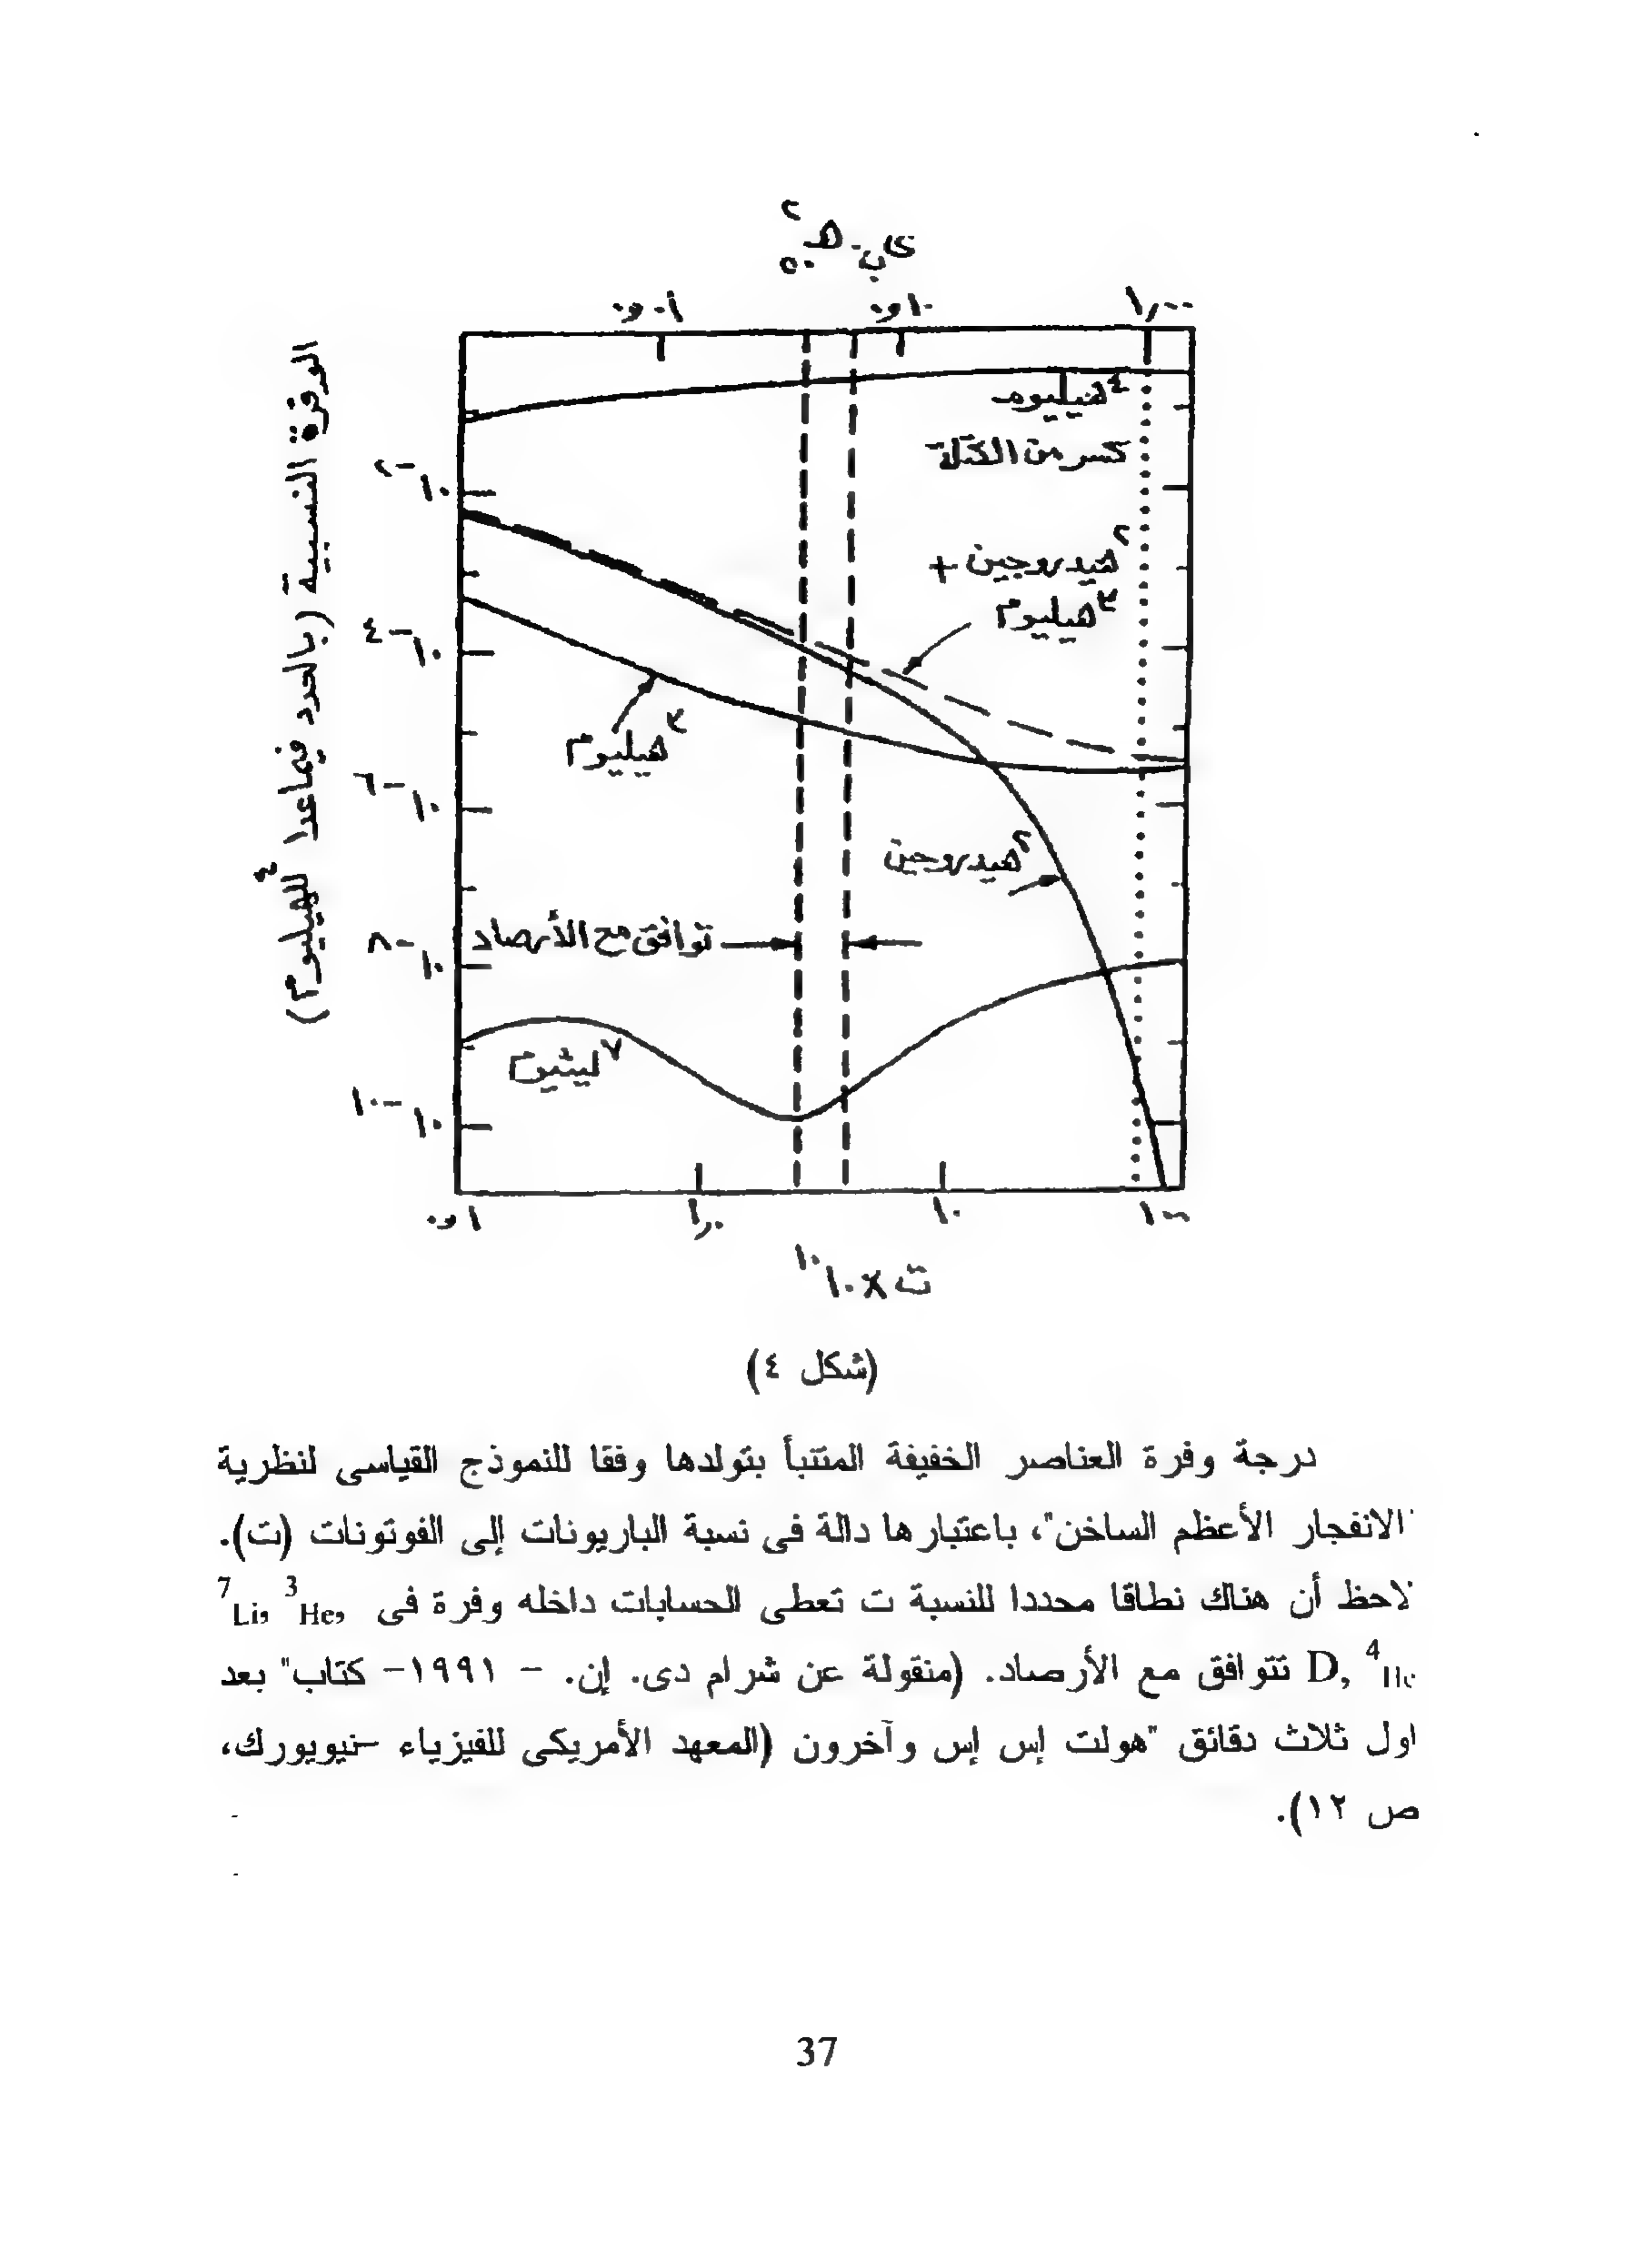 ٠٫٠١ ٠٫١٠ ١٫٠٠
٤هيليوم
كسر من الكتلة
٢هيدروجين +
٣هيليوم
٣هيليوم
٢هيدروجين
توافق مع الأرصاد
٧ليثيوم
الوفرة النسبية (بالعدد فيماعدا للهيليوم٤)
١٠-٢
١٠-٤
١٠-٦
١٠-٨
١٠-١٠
٠٫١ ١٫٠ ١٠ ١٠٠
ت × ١٠^١٠
(شكل ٤)
درجة وفرة العناصر الخفيفة المتنبأ بتولدها وفقا للنموذج القياسى لنظرية
"الانفجار الأعظم الساخن"، باعتبارها دالة فى نسبة الباريونات إلى الفوتونات (ت).
لاحظ أن هناك نطاقا محددا للنسبة ت تعطى الحسابات داخله وفرة فى 7Li، 3He،
D, 4He تتوافق مع الأرصاد. (منقولة عن شرام دى. إن. – ١٩٩١- كتاب" بعد
اول ثلاث دقائق "هولت إس إس وآخرون (المعهد الأمريكى للفيزياء -نيويورك،
ص ١٢).
37